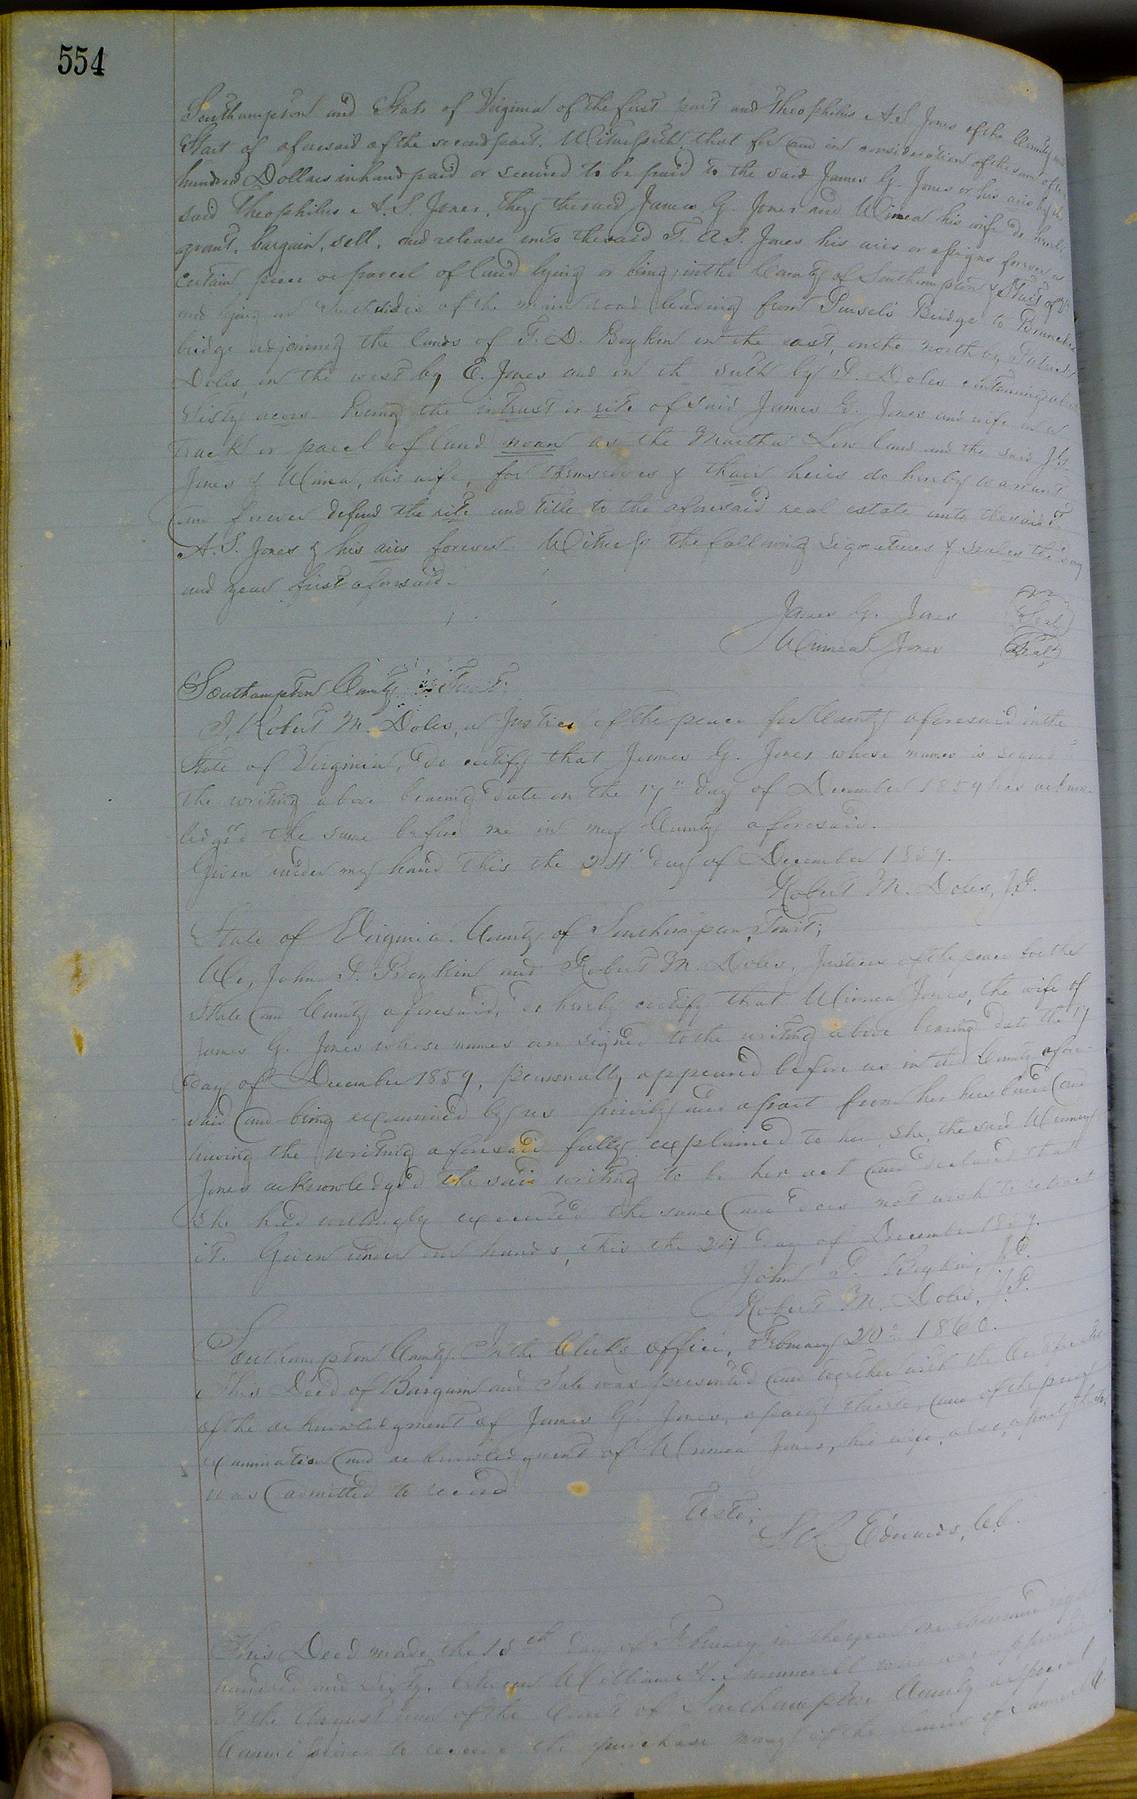 554
Southampton and State of Virginia of the first part and Theophilus A. S. Jones of the County and
State of aforesaid of the second part. Witnesseth, that for and in consideration of the sum of
hundred Dollars in hand paid or secured to be paid to the said James G. Jones or his airs by the
said Theophilus A. S. Jones, they the said James G. Jones and Winnea his wife do hereby
grant, bargain, sell, and release unto the said T. A. S. Jones his airs or assigns forever a
certain piece or parcel of land lying or being in the County of Southampton & State of
and lying on South side of the main road leading from Pursel's Bridge to
bridge adjoining the lands of F. D. Boykin in the east, on the north by
Doles, in the west by E. Jones and in the south by Doles containing about
Sixty acors. Being the intrust or rite of said James G. Jones and wife in a
track or parcel of land noan as the Martha Low land and the said J. G.
Jones & Winnea, his wife, for themselves & thair heirs do hereby warrant
and forever defend the rite and title to the aforesaid real estate unto the said T.
A. S. Jones & his airs forever. Witness the following signatures & seales the day
and year first aforesaid.
James G. Jones (Seal)
Winnea Jones (Seal)
Southampton County to wit:
I, Robert M. Doles, a Justice of the peace for County aforesaid in the
State of Virginia, do certify that James G. Jones whose names is signed
the writing above bearing date on the 17" day of December 1859 has acknow-
ledg'd the same before me in my County aforesaid.
Given under my hand this the 24 day of December 1859.
Robert M. Doles, J.P.
State of Virginia. County of Southampton, Towit;
We, John Boykin and Robert M. Doles, Justices of the peace for the
State and County aforesaid, do hereby certify that Winnea Jones, the wife of
James G. Jones whose names are signed to the writing above bearing date the 17
day of December 1859, personally appeared before us in the County afore-
said and being examined by us privily and apart from her husband and
having the writing aforesaid fully explained to her, she, the said
Jones acknowledged the said writing to be her act and declared that
she had willingly executed the same and does not wish to retract
it. Given under our hands, this the 24 day of December 1859.
John Boykin, J.P.
Robert M. Doles, J.P.
Southampton County. In the Clerk's office, February 20th 1860.
This Deed of Bargain and Sale was presented and together with the Certificates
of the acknowledgment of James G. Jones, a party thereto, and of the privy
examination and acknowledgment of Winnea Jones, his wife, also, a party thereto,
was admitted to record
Teste;
Edwards, C.C.
This Deed made the 18th day of February in the year one thousand eight
hundred and sixty, between William H. who was appointed
at the August term of the Court of Southampton County a special
Commissioner to receive the purchase money of the lands of